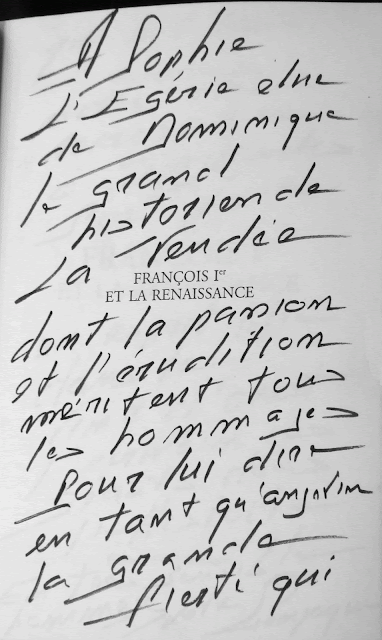 A Sophie
L'Egérie elue
de Dominique
le grand
historien de
La Vendée
FRANÇOIS Ier
ET LA RENAISSANCE
dont la passion
et l'érudition
méritent tous
les hommages
Pour lui dire
en tant qu'angevin
la grande
fierté qui